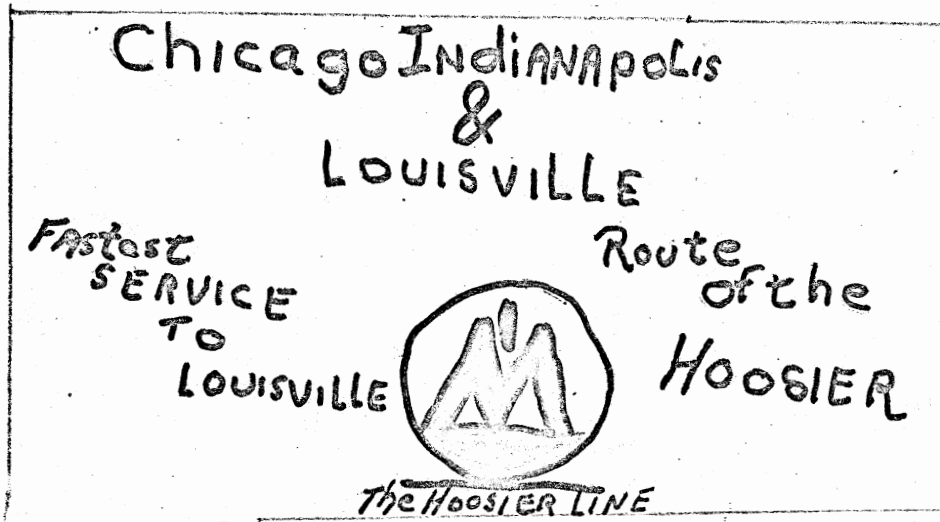 Chicago Indianapolis
&
LOUISVILLE
Fastest
SERVICE
TO
LOUISVILLE
Route
of the
HOOSIER
The HOOSIER LINE